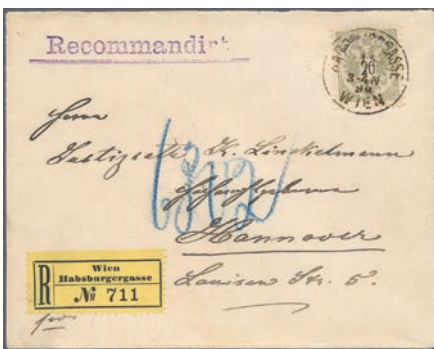 Recommandirt
HABSBURGERGASSE
20
3-4N
90
WIEN
Herrn
Justizrath K. Linckelmann
Hannover
Louisen Str. 5.
1302
R
Wien
Habsburgergasse
№ 711